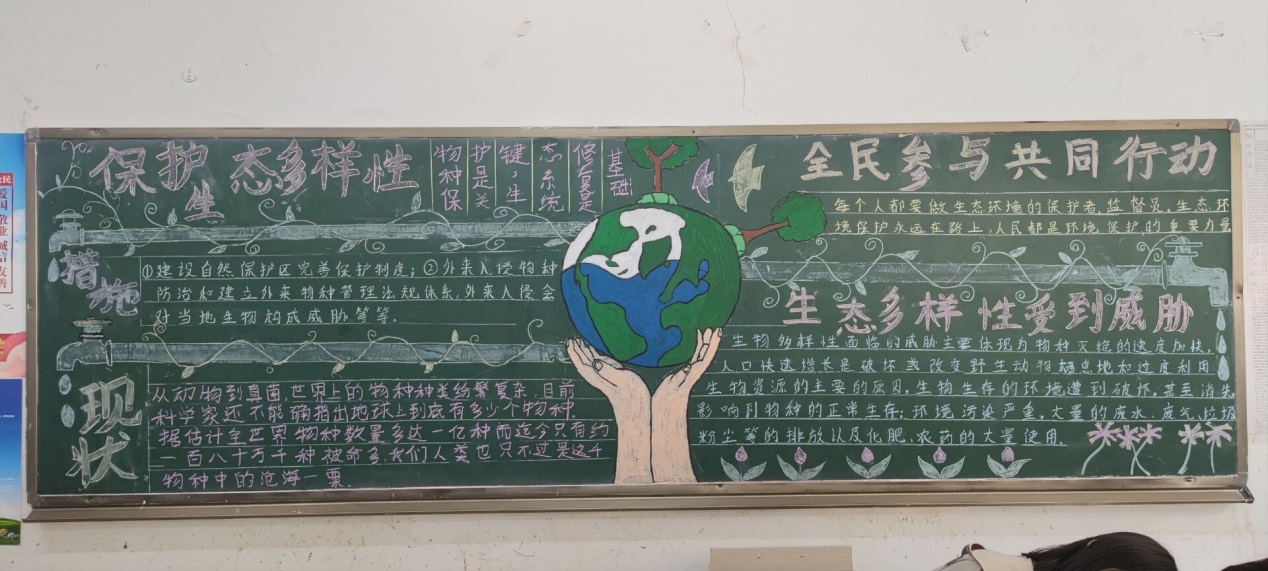 保护生态多样性
物种保
护是关
键，生
态系统
修复是
基础
措施
①建设自然保护区完善保护制度；②外来入侵物种
防治和建立外来物种管理法规体系，外来入侵会
对当地生物构成威胁等等。
现状
从动物到真菌，世界上的物种种类纷繁复杂，目前
科学家还不能确指出地球上到底有多少个物种.
据估计全世界物种数量多达一亿种而迄今只有约
一百八十万千种被命名，我们人类也只不过是这千
物种中的沧海一粟.
全民参与共同行动
每个人都要做生态环境的保护者、监督员、生态环
境保护永远在路上，人民都是环境保护的重要力量
生态多样性受到威胁
生物多样性面临的威胁主要体现为物种灭绝的速度加快，
人口快速增长是破坏或改变野生动物栖息地和过度利用
生物资源的主要的原因，生物生存的环境遭到破坏，甚至消失
影响到物种的正常生存；环境污染严重，大量的废水、废气、垃圾
粉尘等的排放以及化肥、农药的大量使用.
爱国 敬业 诚信 友善